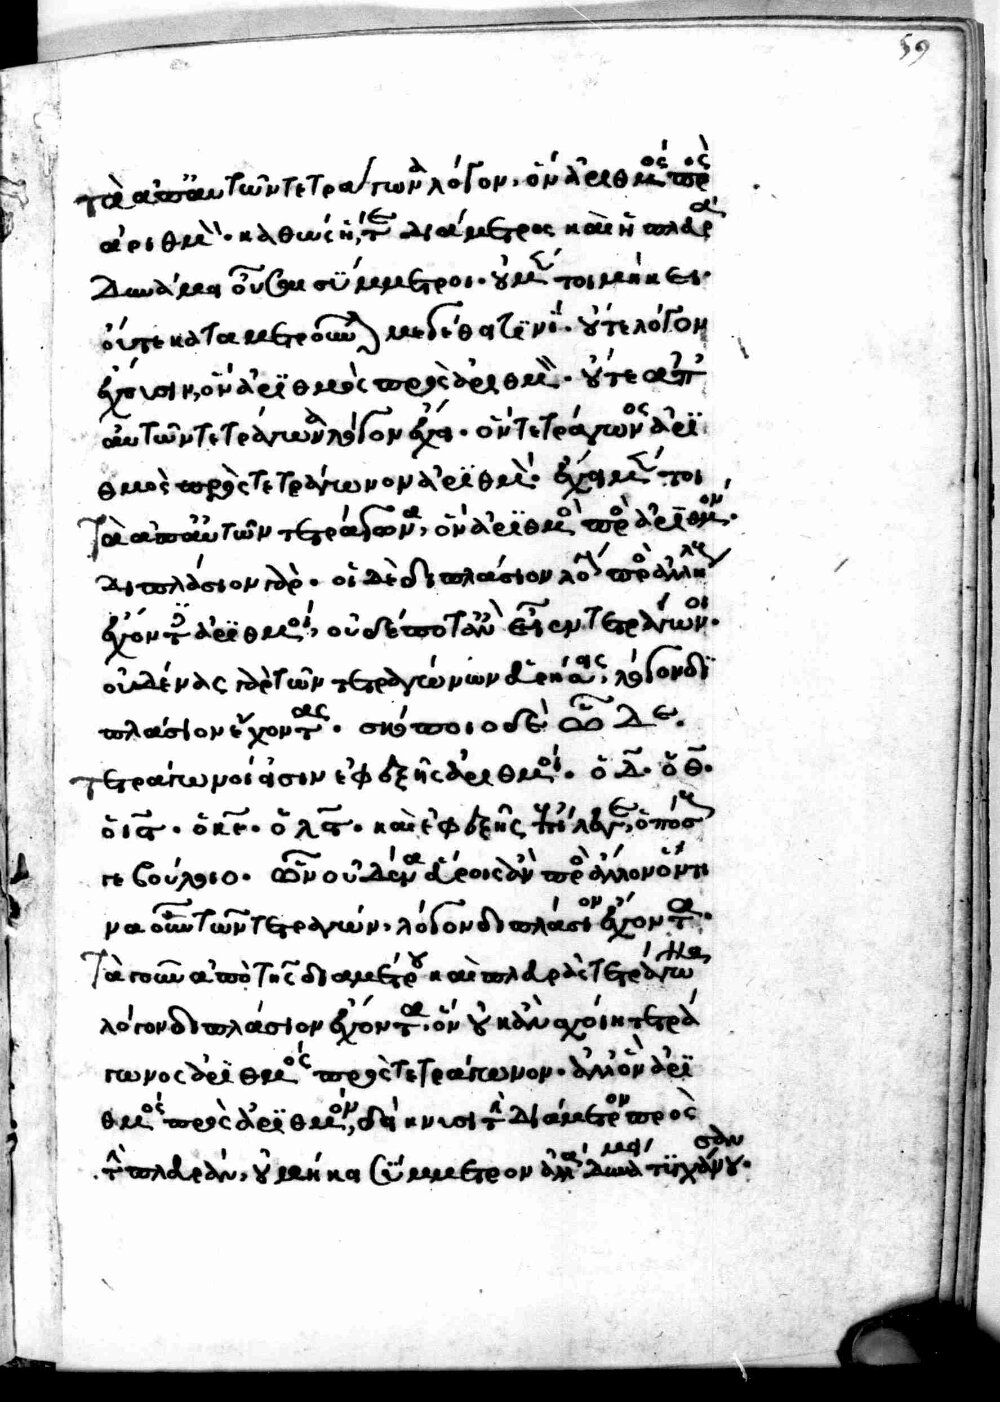 59
τὰ ἀπ' αὐτῶν τετράγωνα λόγον, ὃν ἀριθμὸς πρὸς
ἀριθμὸν. καθὼς ἥ τε διάμετρος καὶ ἡ πλευρὰ
δυνάμει οὖσαι σύμμετροι. οὐ μέντοι μήκει.
οὔτε κατὰ μετροῦν μεγέθη τινί. οὔτε λόγον
ἔχουσιν, ὃν ἀριθμὸς πρὸς ἀριθμὸν. οὔτε ἀπ'
αὐτῶν τετράγωνα λόγον ἔχει. ὃν τετράγωνος ἀριθ
θμὸς πρὸς τετράγωνον ἀριθμὸν. ἔχει μέντοι
τὰ ἀπ' αὐτῶν τετράγωνα, ὃν ἀριθμὸς πρὸς ἀριθμόν.
διπλάσιον γὰρ. οἱ δὲ διπλάσιον λόγον πρὸς ἀλλήλους
ἔχοντες ἀριθμοί, οὐδέποτ' ἂν εἶεν τετράγωνοι.
οὐδένας γὰρ τῶν τετραγώνων λόγον δι
πλάσιον ἔχοντας. σκόπει ὧδε
τετράγωνοί εἰσιν ἐφεξῆς ἀριθμοί. ὁ δ. ὁ θ.
ὁ ις. ὁ κε. ὁ λς. καὶ ἐφεξῆς
βούλοιο. οὐδένα εὕροις ἂν πρὸς ἄλλον ὅντι
να οὖν τῶν τετραγώνων, λόγον διπλάσιον ἔχοντα.
τὰ γοῦν ἀπὸ τῆς διαμέτρου καὶ πλευρᾶς τετράγωνα
λόγον διπλάσιον ἔχοντα. ὃν οὐκ ἂν σχοίη τετρά
γωνος ἀριθμὸς πρὸς τετράγωνον. ἀλλ' ὃν ἀρι
θμὸς πρὸς ἀριθμόν, δείκνυσι τὴν διάμετρον πρὸς
τὴν πλευράν, οὐ μήκει σύμμετρον ἀλλὰ δυνάμει τυγχάνουσαν.